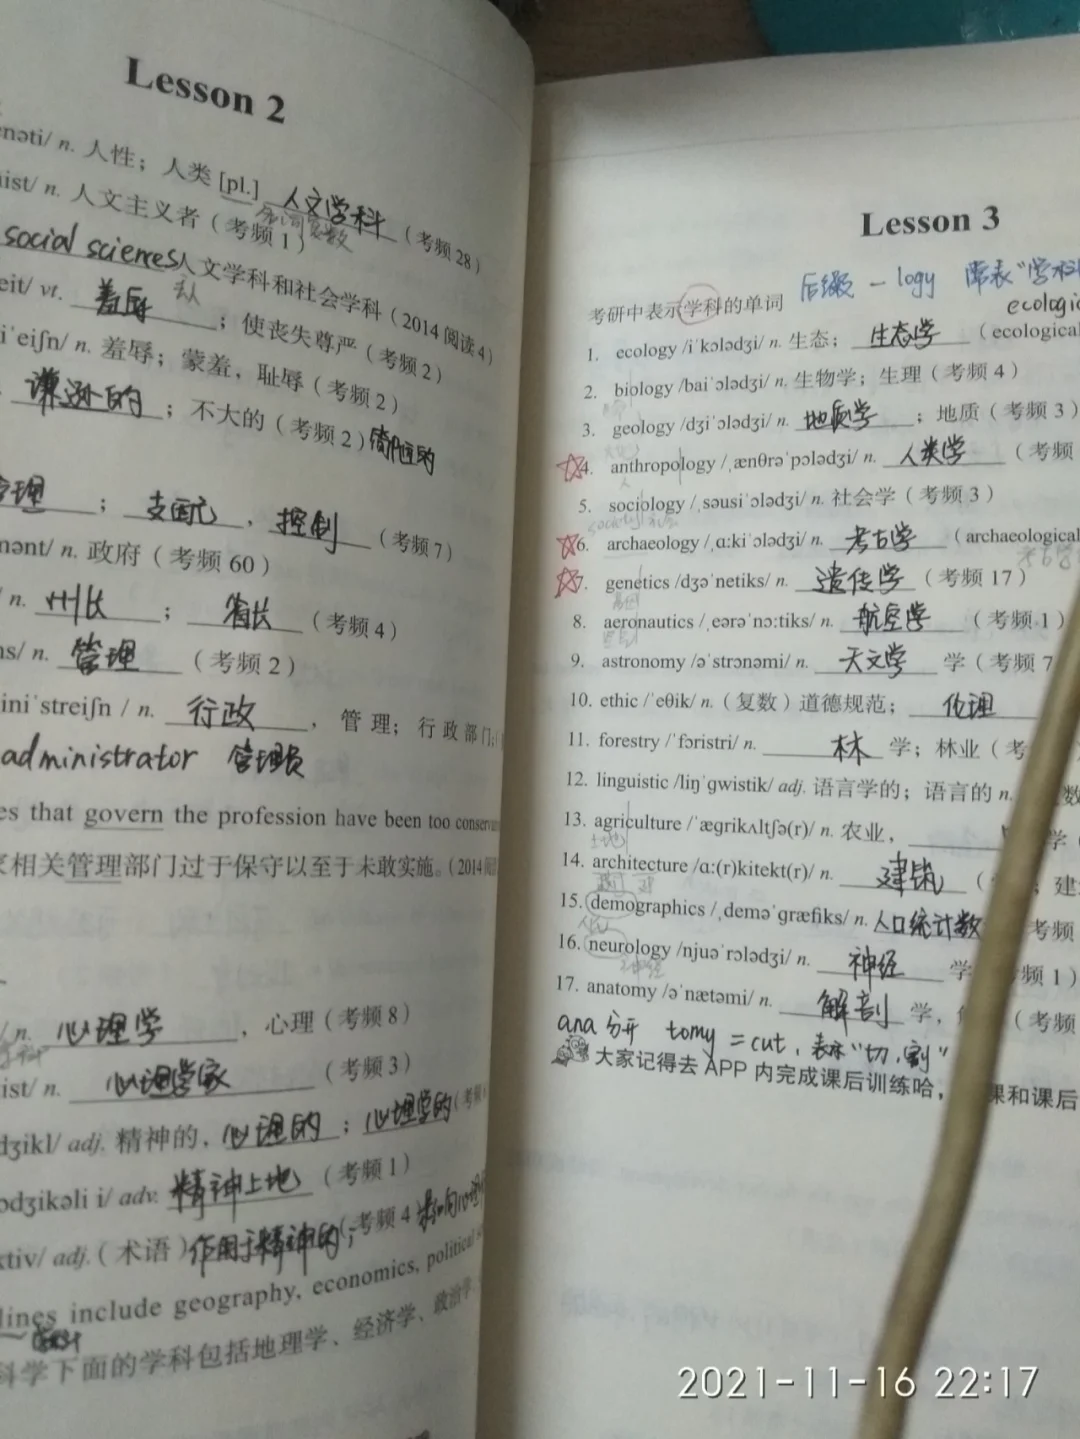 Lesson 2
/ n. 人性；人类 [pl.] 人文学科 (考频 28)
ist/ n. 人文主义者 (考频 1)
social sciences 人文学科和社会学科 (2014 阅读 4)
eit/ vt. 羞辱；使丧失尊严 (考频 2)
i'eiʃn/ n. 羞辱；蒙羞，耻辱 (考频 2)
谦逊的；不大的 (考频 2)
管理；支配，控制 (考频 7)
mənt/ n. 政府 (考频 60)
/ n. 州长；省长 (考频 4)
ns/ n. 管理 (考频 2)
ini'streiʃn / n. 行政，管理；行政部门；
administrator 管理员
es that govern the profession have been too
相关管理部门过于保守以至于未敢实施。(2014
/ n. 心理学，心理 (考频 8)
ist/ n. 心理学家 (考频 3)
dʒikl/ adj. 精神的，心理的；心理学的
ɒdʒikəli i/ adv. 精神上地 (考频 1)
ktiv/ adj. (术语) 作用于精神的； (考频 4
lines include geography, economics, political
科学下面的学科包括地理学、经济学、政治学
Lesson 3
后缀 – logy 常表“学科
考研中表示学科的单词
1. ecology /i'kɒlədʒi/ n. 生态；生态学 (ecological
2. biology /bai'ɒlədʒi/ n. 生物学；生理 (考频 4)
3. geology /dʒi'ɒlədʒi/ n. 地质学；地质 (考频 3)
4. anthropology /ˌænθrə'pɒlədʒi/ n. 人类学 (考频
5. sociology /ˌsəusi'ɒlədʒi/ n. 社会学 (考频 3)
society
6. archaeology /ˌɑ:ki'ɒlədʒi/ n. 考古学 (archaeological
7. genetics /dʒə'netiks/ n. 遗传学 (考频 17)
8. aeronautics /ˌeərə'nɔ:tiks/ n. 航空学 (考频 1)
9. astronomy /ə'strɒnəmi/ n. 天文学 学 (考频 7
10. ethic /'eθik/ n. (复数) 道德规范；伦理
11. forestry /'fɒristri/ n. 林 学；林业 (考
12. linguistic /liŋ'gwistik/ adj. 语言学的；语言的 n.
13. agriculture /'ægrikʌltʃə(r)/ n. 农业，
土地
14. architecture /ɑ:(r)kitekt(r)/ n. 建筑
15. demographics /ˌdemə'græfiks/ n. 人口统计数 考频
16. neurology /njuə'rɒlədʒi/ n. 神经 学 频 1)
17. anatomy /ə'nætəmi/ n. 解剖 学， (考频
ana 分开 tomy = cut，表示“切，割”
大家记得去 APP 内完成课后训练哈， 课和课后
2021-11-16 22:17